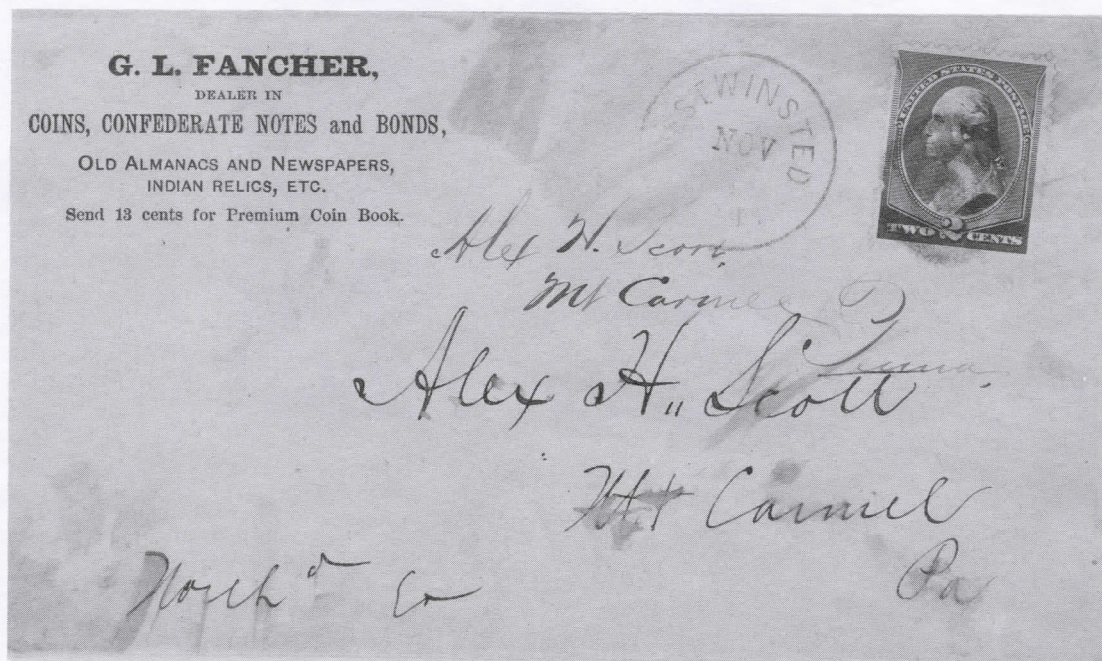 G. L. FANCHER,
DEALER IN
COINS, CONFEDERATE NOTES and BONDS,
OLD ALMANACS AND NEWSPAPERS,
INDIAN RELICS, ETC.
Send 13 cents for Premium Coin Book.
STWINSTED
NOV
UNITED STATES POSTAGE
2
TWO CENTS
Alex H. Scott
Mt Carmel
Penna.
Alex H,, Scott
Mt Carmel
Pa
North'd Co